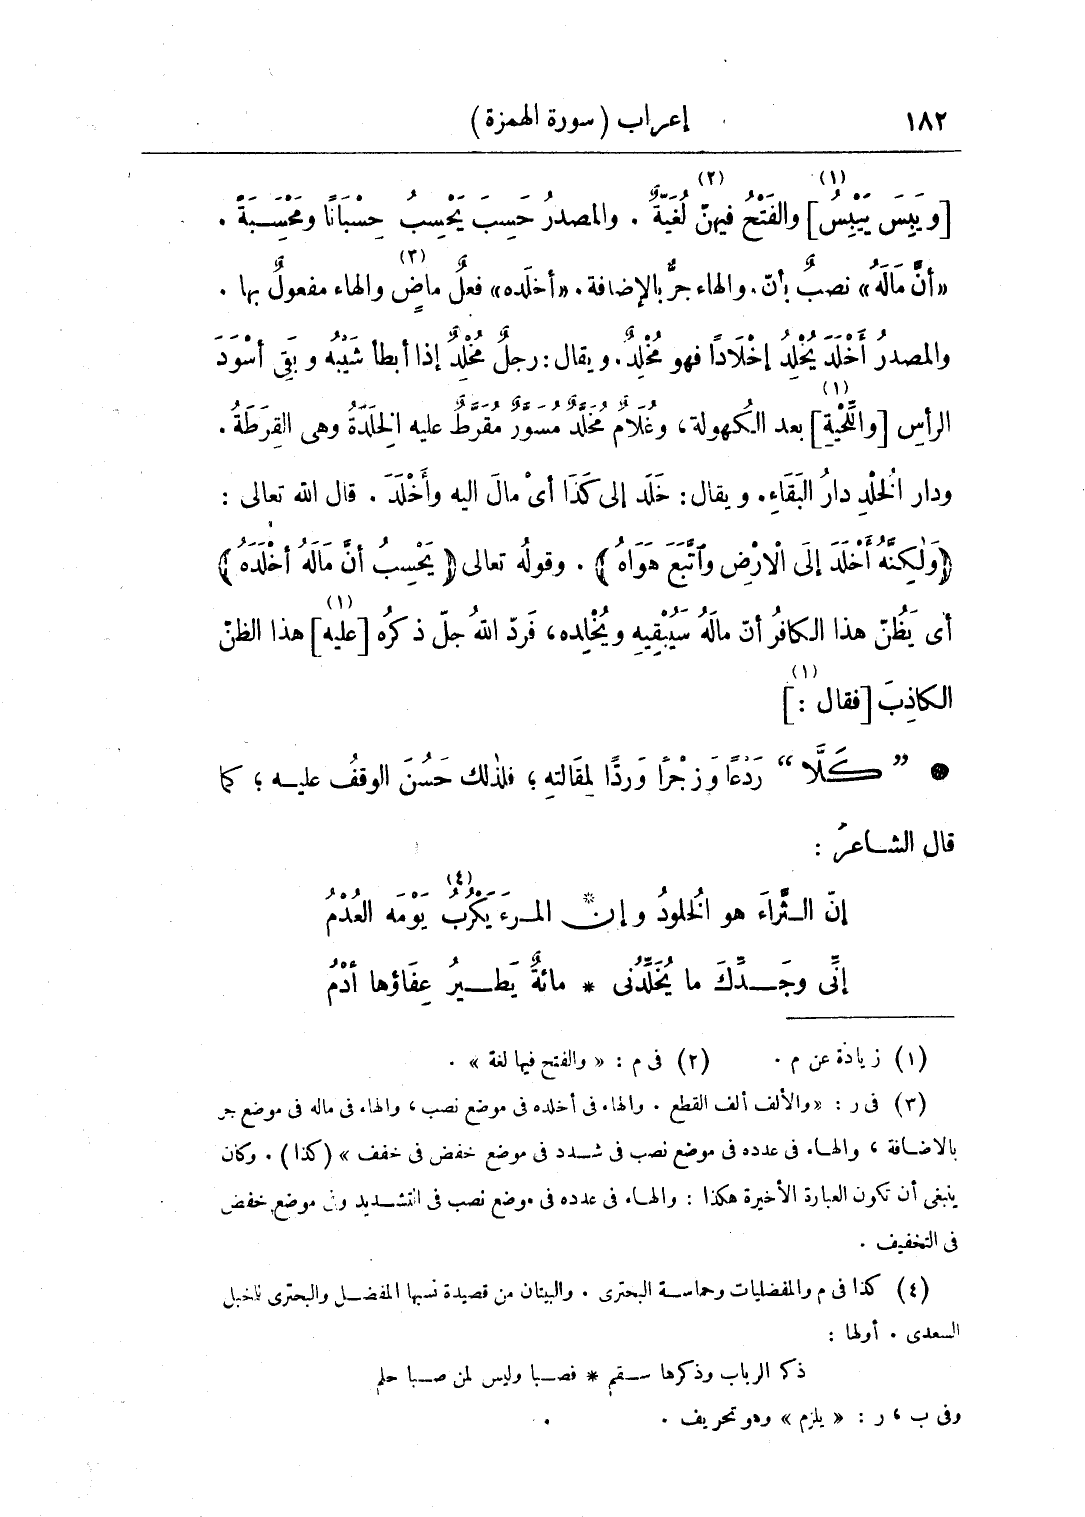 ١٨٢ إعراب (سورة الهمزة)
[ويَبِسَ يَيْبِسُ](١) والفَتْحُ فيهنّ لُغَيّةٌ(٢) . والمصدرُ حَسِبَ يَحْسِبُ حِسْبَانًا ومَحْسَبَةً .
«أنَّ مَالَهُ» نصبٌ بأنّ . والهاء جرٌّ بالإضافة . «أخلَده» فعلٌ ماضٍ(٣) والهاء مفعولٌ بها .
والمصدرُ أَخْلَدَ يُخْلِدُ إخْلَادًا فهو مُخْلِدٌ . ويقال : رجلٌ مُخْلِدٌ إذا أبطأ شَيْبُه وبَقِىَ أسْوَدَ
الرأسِ [واللِّحْيةِ](١) بعد الكُهولة ، وغُلَامٌ مُخَلَّدٌ مُسَوَّرٌ مُقَرَّطٌ عليه الخِلَدَةُ وهى القِرَطَةُ .
ودار الخُلْدِ دارُ البَقَاءِ . ويقال : خَلَد إلى كَذَا أىْ مالَ اليه وأَخْلَدَ . قال الله تعالى :
﴿وَلَٰكِنَّهُ أَخْلَدَ إِلَى الْارْضِ وَٱتَّبَعَ هَوَاهُ﴾ . وقولُه تعالى ﴿يَحْسِبُ أَنَّ مَالَهُ أَخْلَدَهُ﴾
أى يَظُنّ هذا الكافرُ أنّ مالَهُ سَيُبْقِيهِ ويُخْلِده ، فَردّ اللهُ جلّ ذكرُه [عليه](١) هذا الظنّ
الكاذِبَ [فقال :](١)
● ”كَلَّا“ رَدْعًا وَزجْرًا وَردًّا لِمقَالتهِ ؛ فلذٰلك حَسُنَ الوقفُ عليه ؛ كما
قال الشاعرُ :
إنّ الثَّراءَ هو الخُلودُ وإن * المرءَ يَكْرُبُ(٤) يَوْمَه العُدْمُ
إنِّى وجَدِّكَ ما يُخَلِّدُنى * مائةٌ يَطيرُ عِفَاؤها أُدْمُ
(١) زيادة عن م . (٢) فى م : « والفتح فيها لغة » .
(٣) فى ر : «والألف ألف القطع . والهاء فى أخلده فى موضع نصب ، والهاء فى ماله فى موضع جر
بالاضافة ، والهاء فى عدده فى موضع نصب فى شدد فى موضع خفض فى خفف » (كذا) . وكان
ينبغى أن تكون العبارة الأخيرة هكذا : والهاء فى عدده فى موضع نصب فى التشديد وفى موضع خفض
فى التخفيف .
(٤) كذا فى م والمفضليات وحماسة البحترى . والبيتان من قصيدة نسبها المفضل والبحترى للمخبل
السعدى . أولها :
ذكر الرباب وذكرها سقم * فصبا وليس لمن صبا حلم
وفى ب ، ر : « يلزم » وهو تحريف .